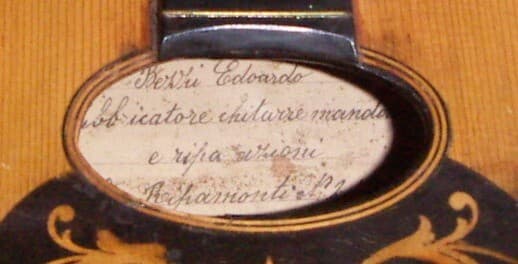 Bezzi Edoardo
abbricatore chitarre mando
e ripa azioni
Ripamonti N. 2